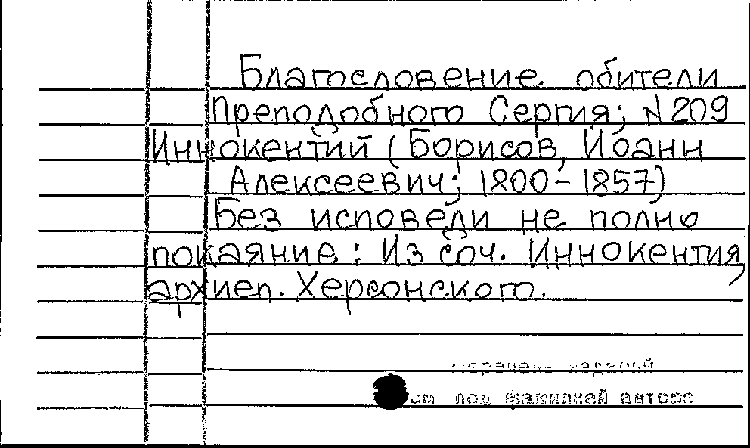 Благословение обители
Преподобного Сергия; N 209
Иннокентий (Борисов, Иоанн
Алексеевич; 1800-1857)
Без исповеди не полно
покаяние: Из соч. Иннокентия,
архиеп. Херсонского.
изданий
под фамилией автора